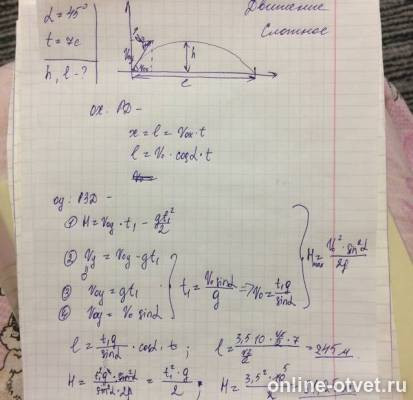 Движение
Сложное
α = 45°
t = 7c
h, l - ?
h
l
ox: РД -
x = l = Vox · t
l = V₀ · cosα · t
oy: РЗД -
① H = Voy · t₁ - gt₁²/2
② Vy = Voy - gt₁
③ Voy = gt₁
④ Voy = V₀ sinα
t₁ = V₀ sinα/g => V₀ = t₁g/sinα
Hmax = V₀² · sin²α/2g
l = t₁g/sinα · cosα · t ; l = 3,5 · 10 · · 7 = 245 м
H = t₁²g² · sin²α/sin²α · 2g = t₁² · g/2 ; H = 3,5² · 10/2
online-otvet.ru